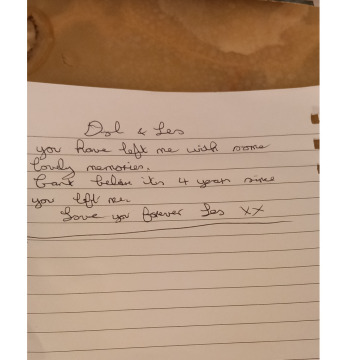 & Les
you have left me with some
lovely memories.
Can't its 4 years since
you left me.
Love you forever Les XX